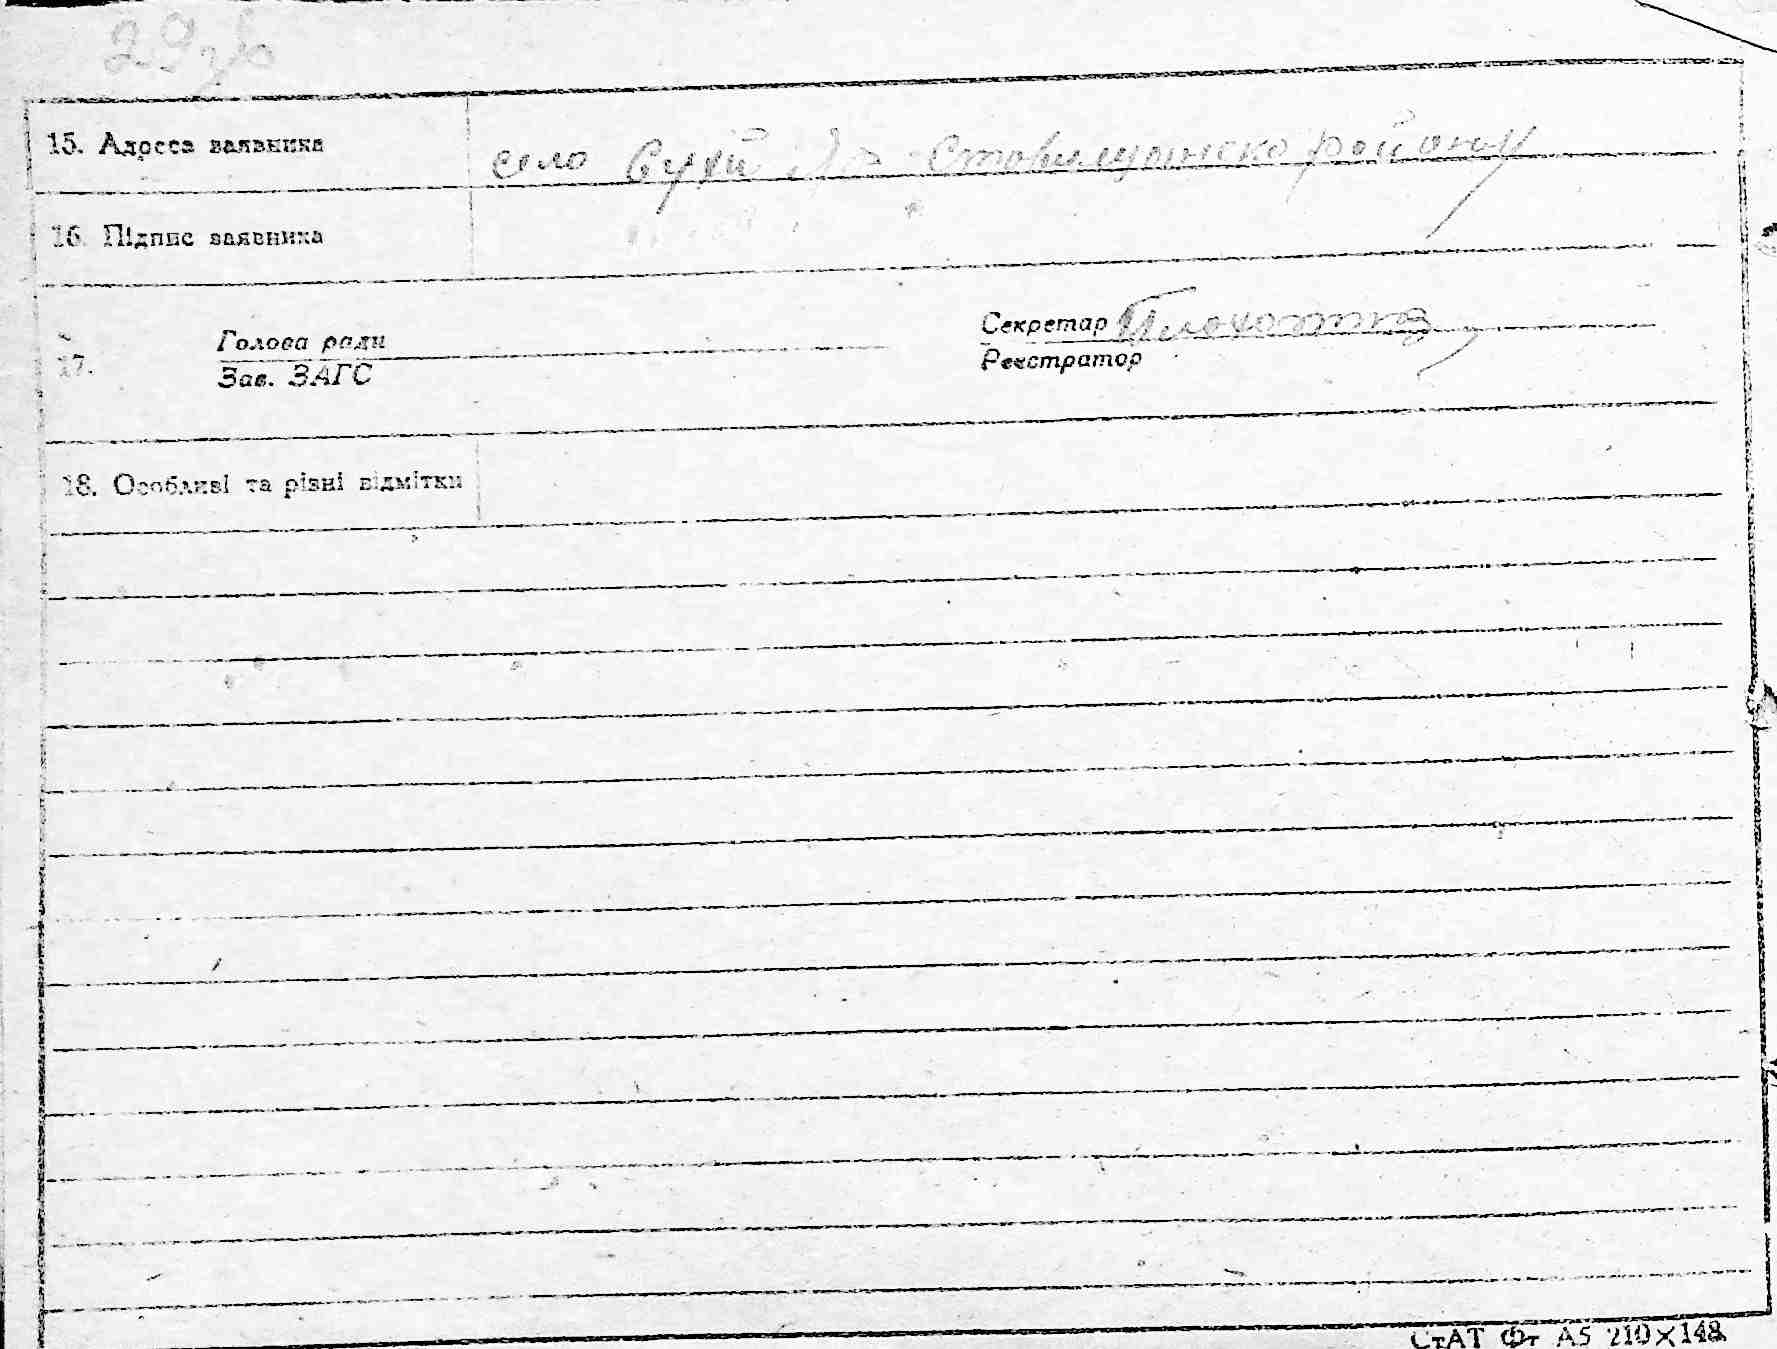 29зв
15. Адреса заявника село Сухий Яр Ставищанско району
16. Підпис заявника
17. Голова ради Секретар
Зав. ЗАГС Реєстратор
18. Особливі та різні відмітки
СтАТ Фт А5 210×148